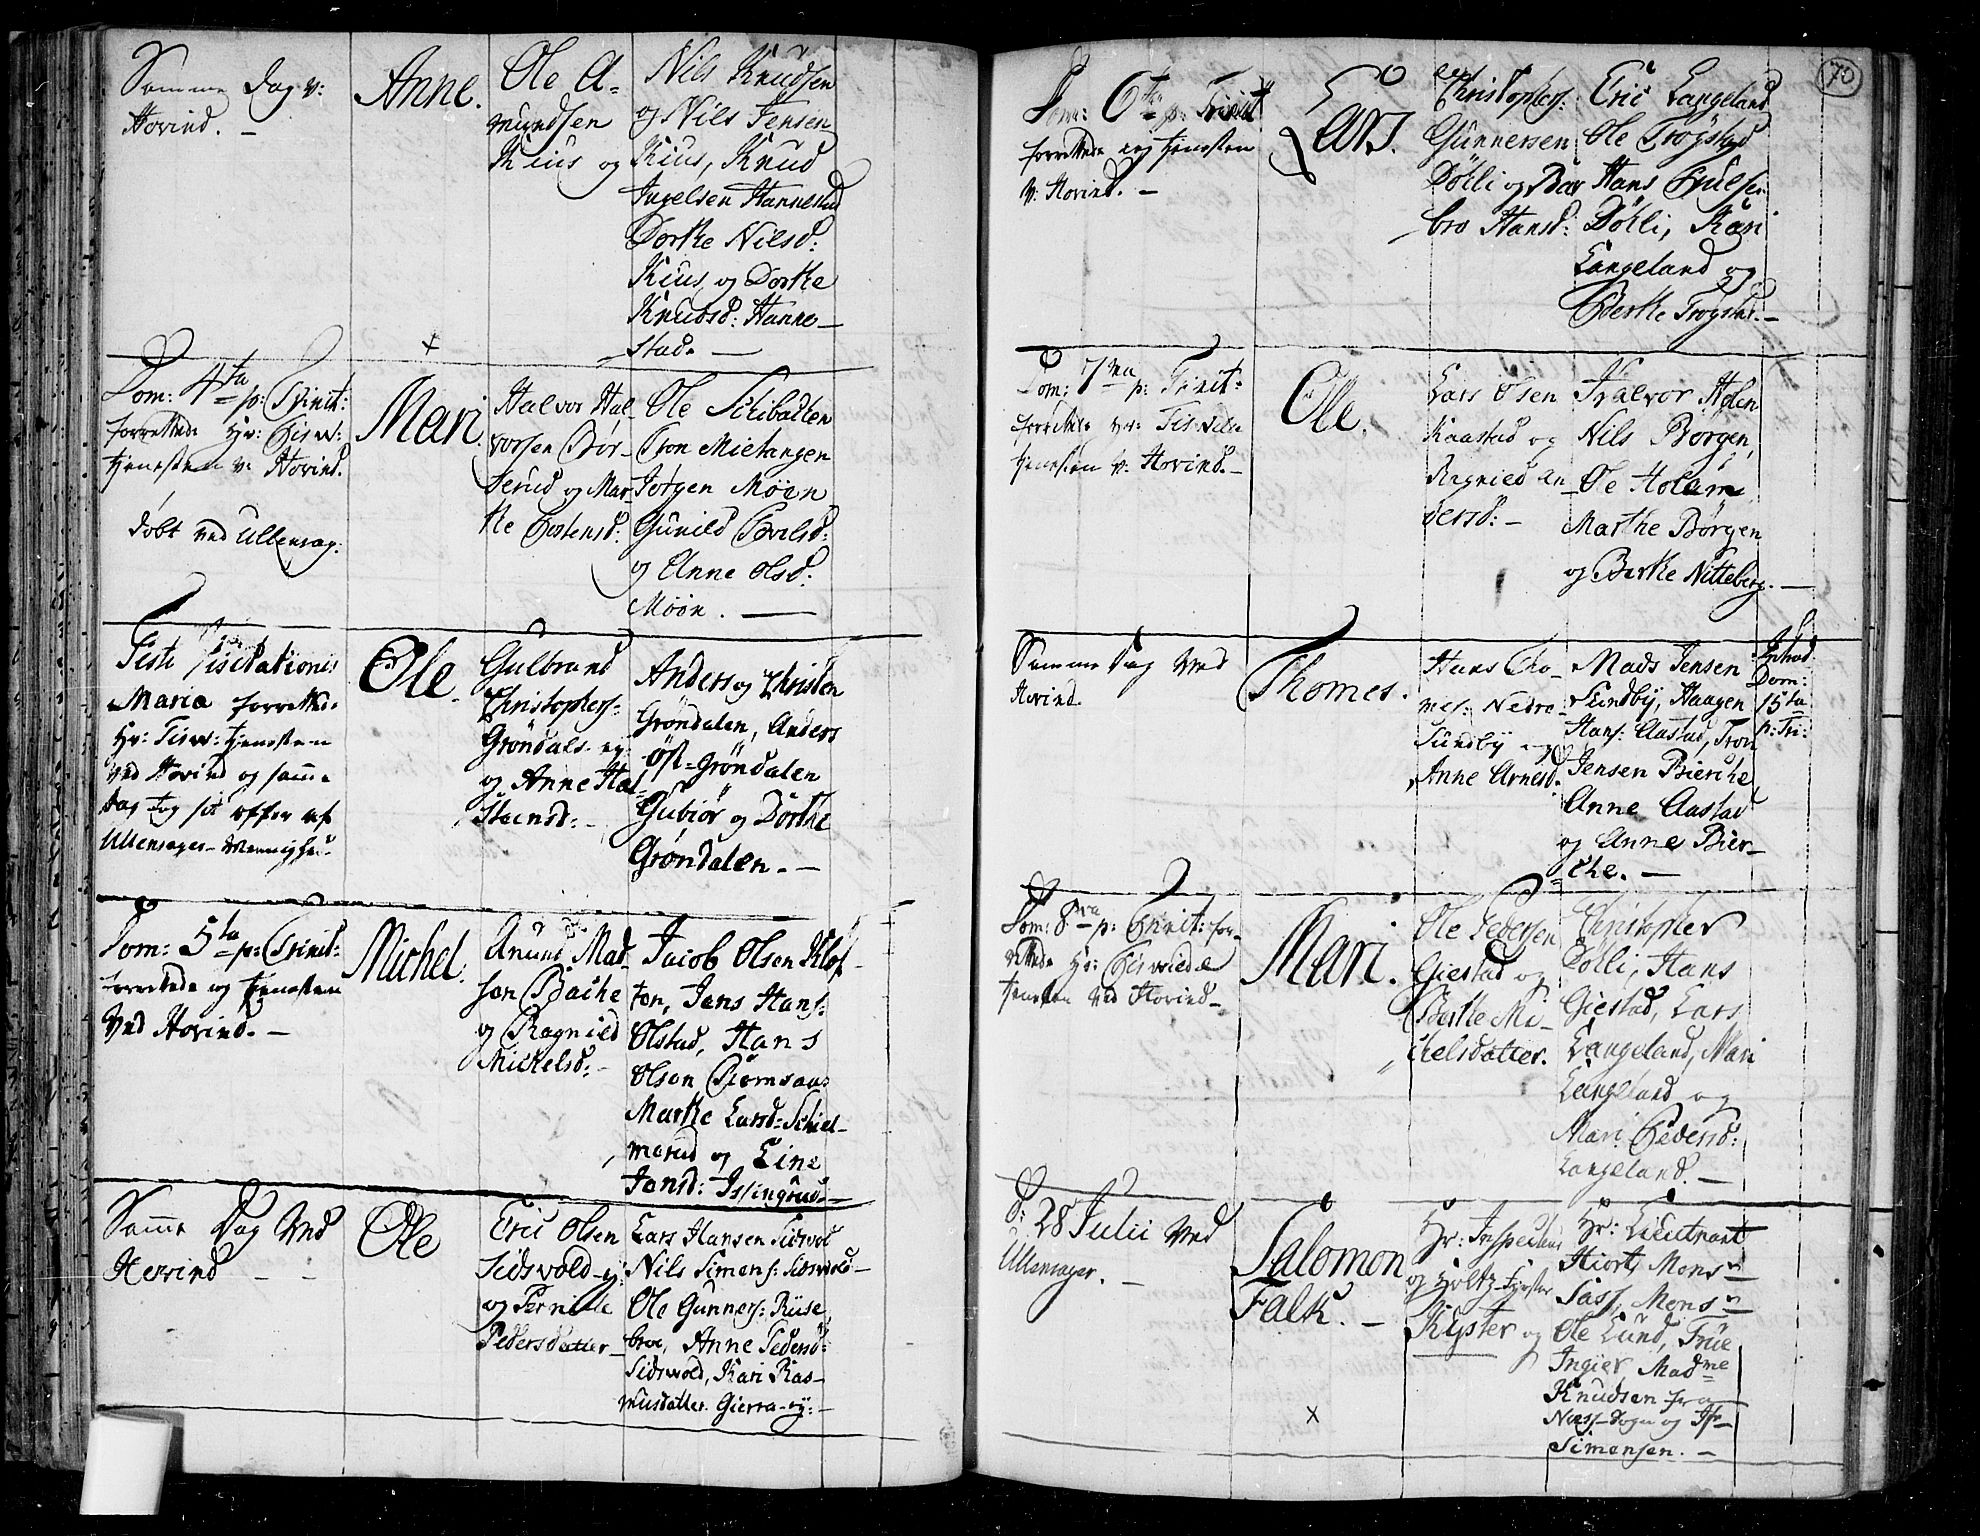 Samme Dag v:
Hovind. —
Anne.
Ole A-
mundsen
Kius og
Nils Knudsen
og Nils Jensen
Kius, Knud
Ingelsen Hannestad
Dorthe Nilsd:
Kius, og Dorthe
Knudsd: Hanne-
stad. —
Dom: 4ta p: Trinit:
forrettede Hr: Tisw:
tjenesten v: Hovind.
døbt ved Ullensag:
Mari
Halvor Hal-
vorsen Bør-
serud og Mar-
the Tostensd:
Ole Schibadten
Tron Mietangen
Jørgen Moen
Gunild
og Anne Olsd:
Moen. —
Festi Visitationis
Maria forretted.
Hr: Tisw: tjenesten
ved Hovind og samme
dag tog sit offer af
Ullensager Menighed.
Ole
Gulbrand
Christophers:
Grøndals-ej:
og Anne Hal-
steensd: -
Anders og Christen
Grøndalen, Anders
Øst-Grøndalen
Gubiør og Dorthe
Grøndalen. —
Dom: 5ta p: Trinit:
forrettede og tjenesten
Ved Hovind. —
Michel.
Amund Mad-
sen Bache
og Ragnild
Mickelsd: -
Jacob Olsen Klof-
ten, Jens Hans:
Olstad, Hans
Olsen
Marthe Larsd: Schiel-
merud og Line
Jensd: Islingrud —
Samme Dag Ved
Hovind - -
Ole
Eric Olsen
Sidsvold-ej:
og Pernille
Pedersdatter
Lars Hansen Sidsvol
Nils Simens: Sidsvold-
Ole Gunners: Ruse
broe, Anne Pedersd:
Sidsvold, Kari Ras-
musdatter Gierra-ej: -
70
Dom: 6te p: Trinit
forrettede og tjenesten
v: Hovind. —
Lars.
Christophers:
Gunnersen
Dølli og Bar
bro Hansd:
Eric Langeland
Ole Trøgstad
Hans
Dølli, Kari
Langeland og
Berthe Trøgstad. —
Dom: 7ma p: Trinit:
forrettede Hr: Tiswede
tjenesten v: Hovind. —
Ole.
Lars Olsen
Kaastad og
Ragnild An-
dersd: —
Halvor Holen
Nils Borgen,
Ole Holum
Marthe Børgen
og Berthe Nitteberg. —
Samme Dag Ved
Hovind.
Thomes.
Hans Tho-
mes: Nedre
Sundby og
Anne Arnesd.
Mads Jensen
Sundby, Haagen
Hans: Aastad, Tron
Jensen Bierche
Anne Aastad
og Anne Bier-
che. —
Introd
Dom:
15ta
p: Tri:
Dom: 8va p: Trinit: for-
rettede Hr: Tiswede
tjenesten Ved Hovind —
Mari.
Ole Pedersen
Giestad og
Berthe Mi-
chelsdatter.
Christopher
Dølli, Hans
Giestad, Lars
Langeland, Mari
Langeland og
Mari Pedersd:
Langeland. —
D: 28 Julii Ved
Ullensager. —
Salomon
Falk. —
Hr: Inspecteur
og Holtz-Første
Kyster og
Hr: Lieutnant
Hiort, Monsr
Sass, Monsr
Ole Lund, Frue
Ingier, Madme
Knudsen fra
Næss-Sogn og Jfr
Simensen. —